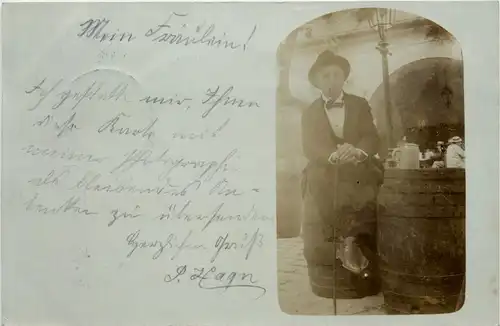 Mein Fräulein!
Ich gestatte mir, Ihnen
diese Karte mit
meiner Photographie
als bleibendes An-
denken zu übersenden
Herzlichen Gruß
P. Hagn